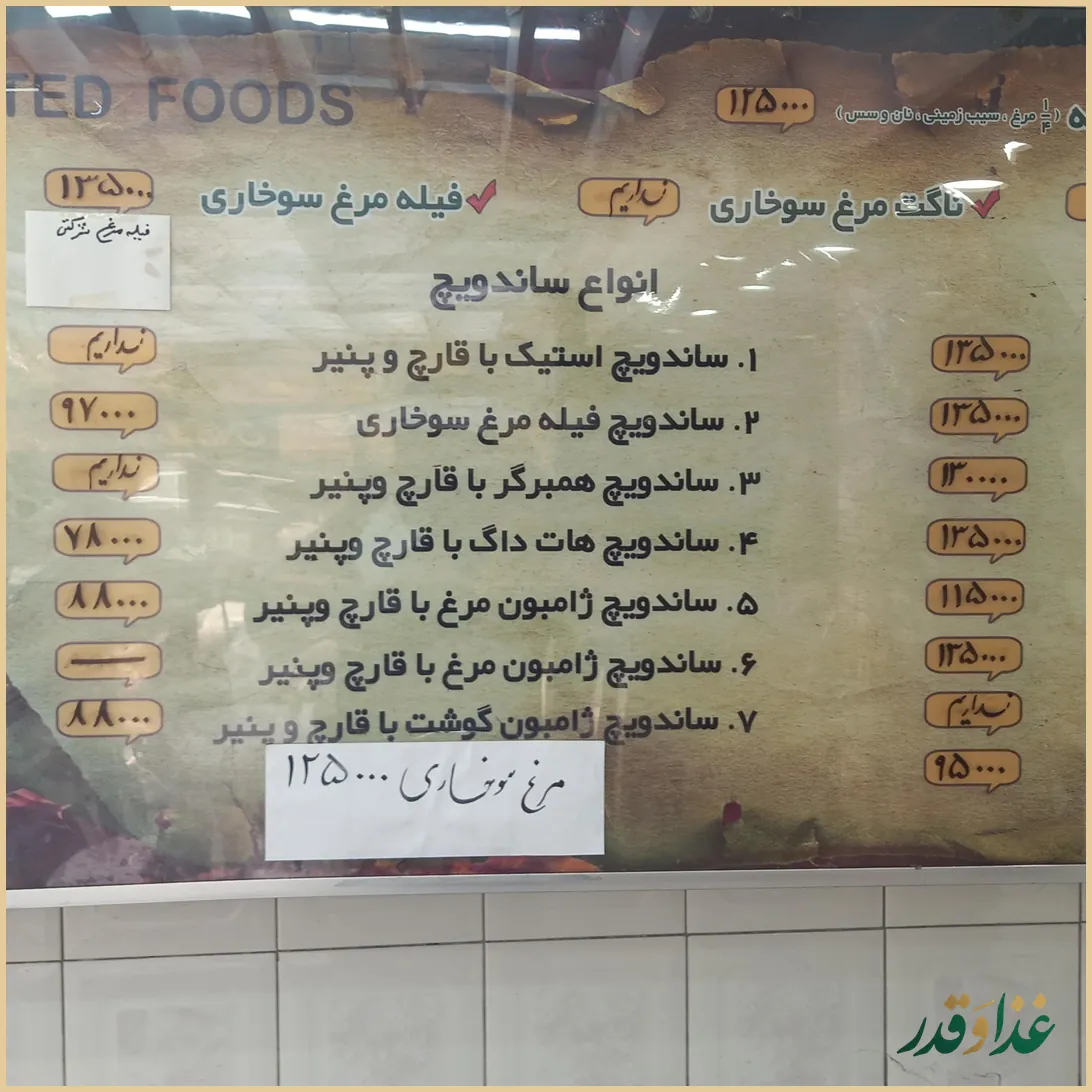 TED FOODS
۵ ( ۱/۴ مرغ ، سیب زمینی ، نان و سس ) ۱۲۵۰۰۰
ناگت مرغ سوخاری نداریم
فیله مرغ سوخاری ۱۳۵۰۰۰
فیله مرغ شرکتی
انواع ساندویچ
۱. ساندویچ استیک با قارچ و پنیر نداریم
۲. ساندویچ فیله مرغ سوخاری ۹۷۰۰۰
۳. ساندویچ همبرگر با قارچ وپنیر نداریم
۴. ساندویچ هات داگ با قارچ وپنیر ۷۸۰۰۰
۵. ساندویچ ژامبون مرغ با قارچ وپنیر ۸۸۰۰۰
۶. ساندویچ ژامبون مرغ با قارچ وپنیر —
۷. ساندویچ ژامبون گوشت با قارچ و پنیر ۸۸۰۰۰
مرغ سوخاری ۱۲۵۰۰۰
۱۳۵۰۰۰
۱۳۵۰۰۰
۱۳۰۰۰۰
۱۳۵۰۰۰
۱۱۵۰۰۰
۱۳۵۰۰۰
نداریم
۹۵۰۰۰
غذا و قدر